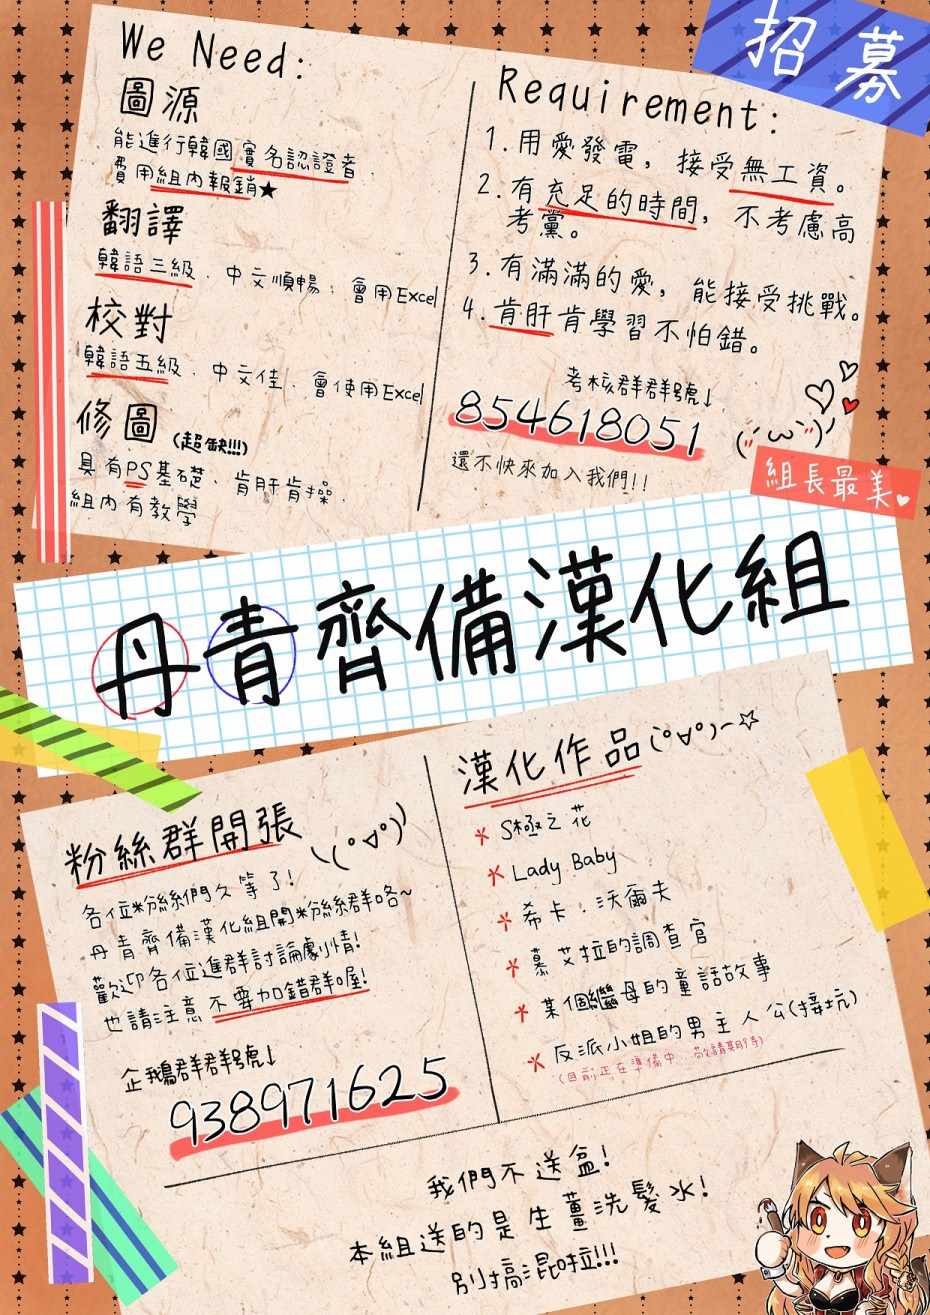 招募
We Need:
圖源
能進行韓國實名認證者.
費用組內報銷★
翻譯
韓語三級、中文順暢、會用Excel
校對
韓語五級、中文佳、會使用Excel
修圖 (超缺!!!)
具有PS基礎、肯肝肯操、
組內有教學
Requirement:
1.用愛發電，接受無工資。
2.有充足的時間，不考慮高
考黨。
3.有滿滿的愛，能接受挑戰。
4.肯肝肯學習不怕錯。
考核群群號↓
854618051
還不快來加入我們!!
組長最美♥
丹青齊備漢化組
粉絲群開張
各位粉絲們久等了!
丹青齊備漢化組開粉絲群咯~
歡迎各位進群討論劇情!
也請注意不要加錯群喔!
企鵝群群號↓
938971625
漢化作品(°∀°)~☆
* S極之花
* Lady Baby
* 希卡・沃爾夫
* 慕艾拉的調查官
* 某個繼母的童話故事
* 反派小姐的男主人公(接坑)
(目前正在準備中、敬請期待)
我們不送盆!
本組送的是生薑洗髮水!
別搞混啦!!!